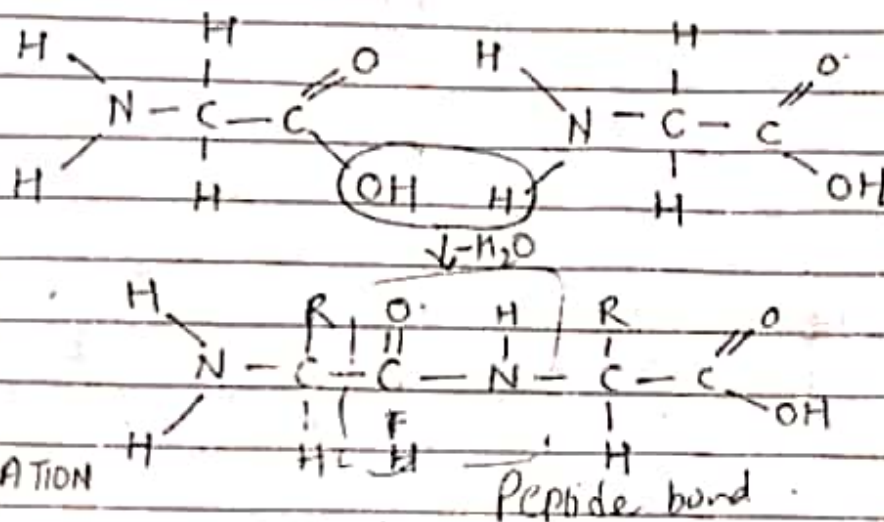 H H O H H O
N - C - C N - C - C
H H OH H H OH
↓ -H₂O
H R O H R O
N - C - C - N - C - C
H H H H OH
ATION Peptide bond